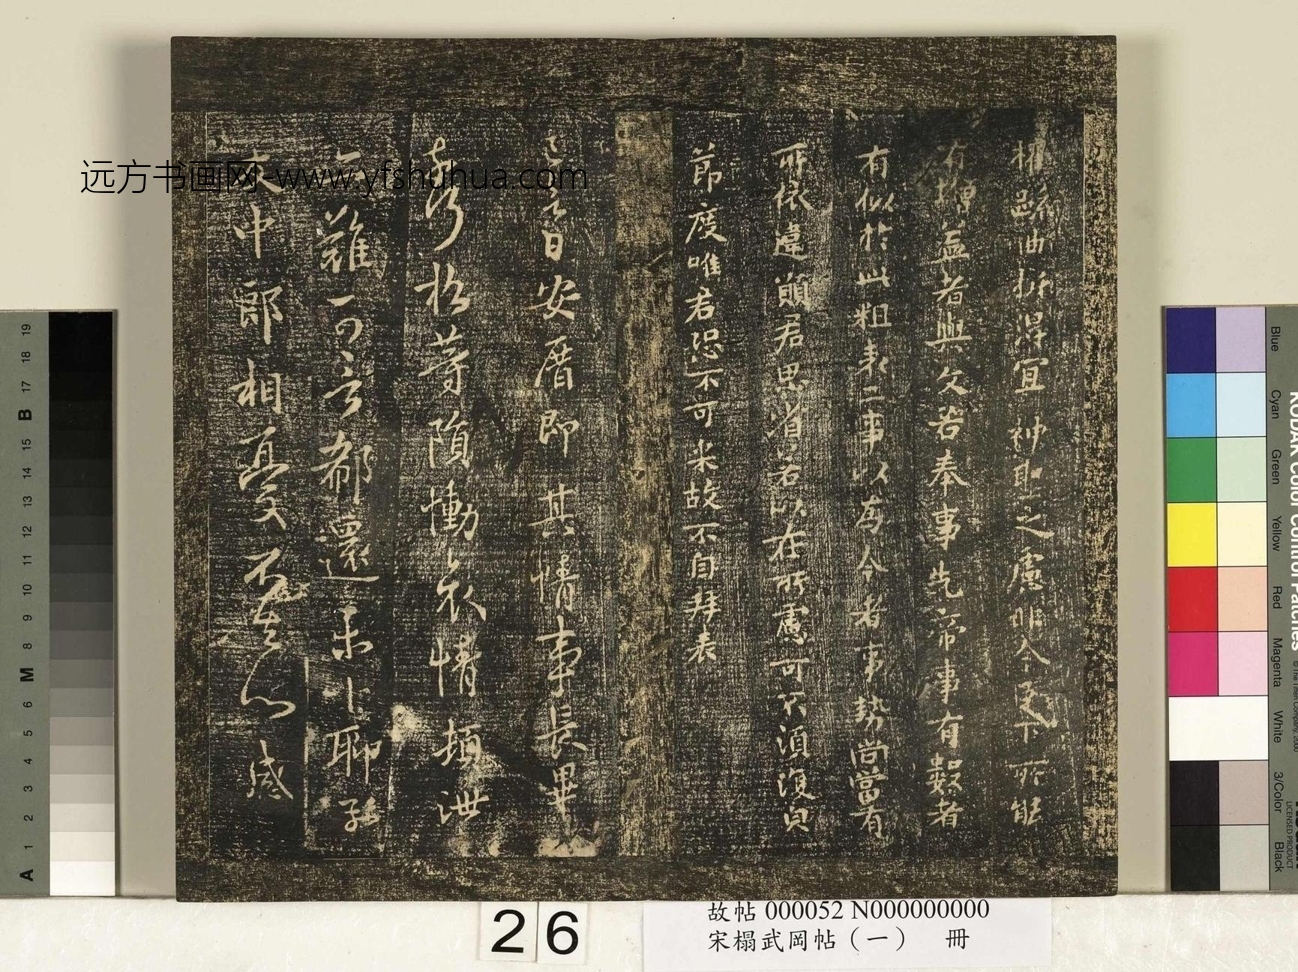 權疏曲折得宜神聖之慮非今臣下所能
有增益者與文若奉事先帝事有數者
有似於此粗表二事以爲今者事勢尚當有
所依違願君思省若以在所慮可不須復皃
節度唯君恐不可采故不自拜表
安厝即其情事長畢
尋隕慟哀情頓泄
難可言都還未卜聊
中郎相憂不去心感
远方书画网-www.yfshuhua.com
26
故帖 000052 N000000000
宋榻武岡帖（一） 冊
KODAK Color Control Patches
Blue
Cyan
Green
Yellow
Red
Magenta
White
3/Color
Black
A 1 2 3 4 5 6 M 8 9 10 11 12 13 14 15 B 17 18 19